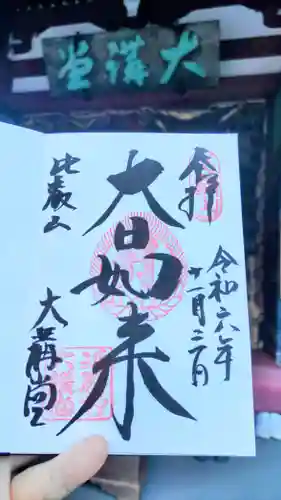 大講堂
奉拝
令和六年
十一月三日
大日如来
比叡山
大講堂